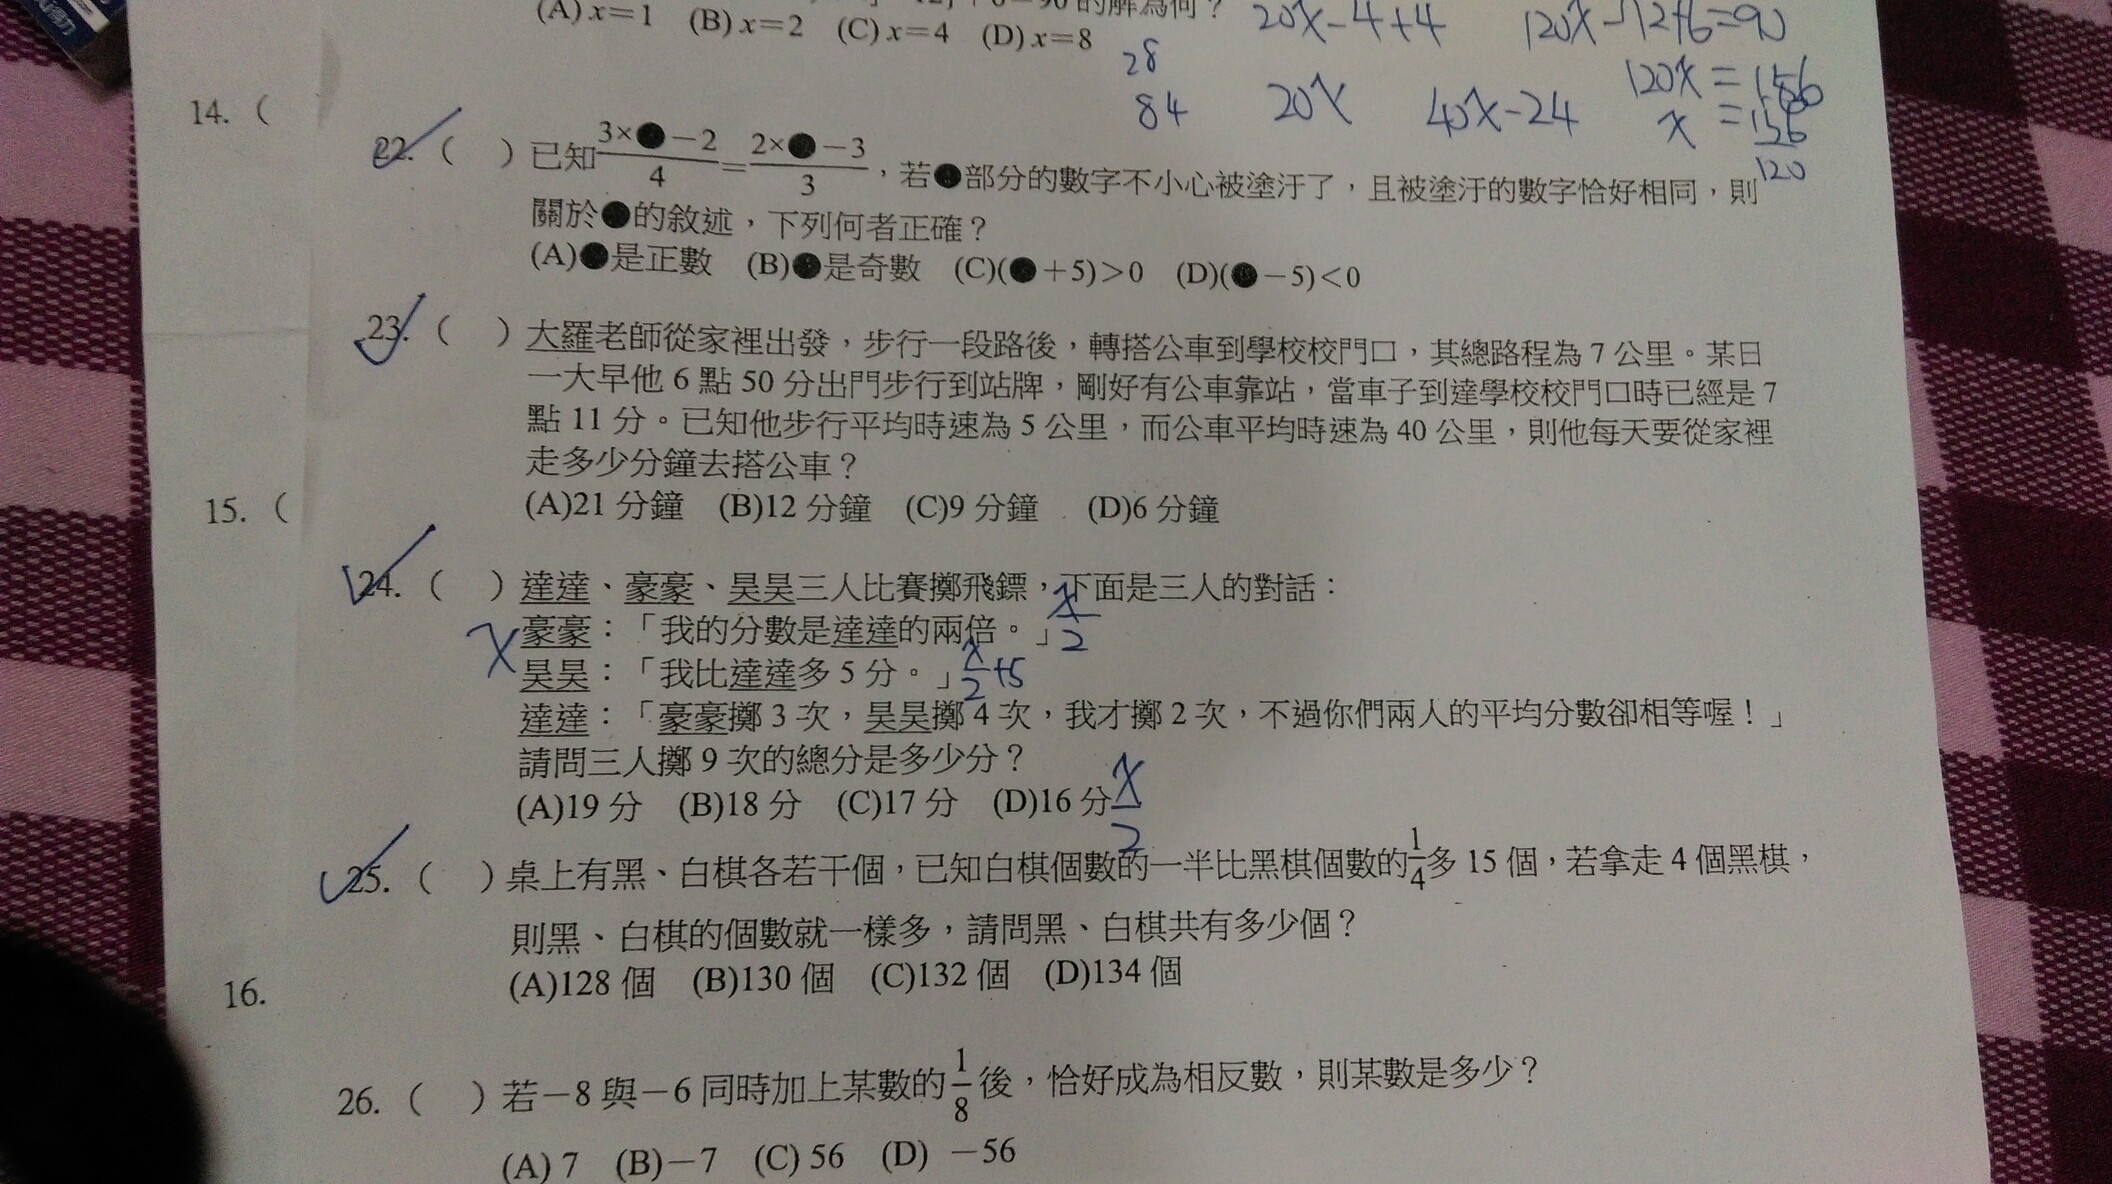 的解為何？
(A) x＝1 (B) x＝2 (C) x＝4 (D) x＝8
20x－4＋4
120x－12＋6＝90
28
84
20x
40x－24
120x＝156
x＝156/120
14. (
22. ( ) 已知 (3×●－2)/4＝(2×●－3)/3，若●部分的數字不小心被塗汙了，且被塗汙的數字恰好相同，則
關於●的敘述，下列何者正確？
(A)●是正數 (B)●是奇數 (C)(●＋5)＞0 (D)(●－5)＜0
23. ( ) 大羅老師從家裡出發，步行一段路後，轉搭公車到學校校門口，其總路程為 7 公里。某日
一大早他 6 點 50 分出門步行到站牌，剛好有公車靠站，當車子到達學校校門口時已經是 7
點 11 分。已知他步行平均時速為 5 公里，而公車平均時速為 40 公里，則他每天要從家裡
走多少分鐘去搭公車？
15. (
(A)21 分鐘 (B)12 分鐘 (C)9 分鐘 (D)6 分鐘
24. ( ) 達達、豪豪、昊昊三人比賽擲飛鏢，下面是三人的對話：
x 豪豪：「我的分數是達達的兩倍。」x/2
昊昊：「我比達達多 5 分。」x/2＋5
達達：「豪豪擲 3 次，昊昊擲 4 次，我才擲 2 次，不過你們兩人的平均分數卻相等喔！」
請問三人擲 9 次的總分是多少分？
(A)19 分 (B)18 分 (C)17 分 (D)16 分 x/2
25. ( ) 桌上有黑、白棋各若干個，已知白棋個數的一半比黑棋個數的1/4多 15 個，若拿走 4 個黑棋，
則黑、白棋的個數就一樣多，請問黑、白棋共有多少個？
(A)128 個 (B)130 個 (C)132 個 (D)134 個
16.
26. ( ) 若－8 與－6 同時加上某數的1/8後，恰好成為相反數，則某數是多少？
(A) 7 (B)－7 (C) 56 (D) －56